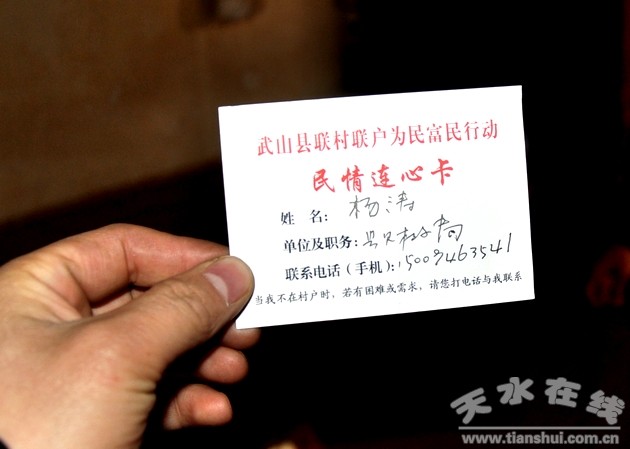 武山县联村联户为民富民行动
民情连心卡
姓 名： 杨涛
单位及职务：县 局
联系电话（手机）：15009463541
当我不在村户时，若有困难或需求，请您打电话与我联系
天水在线
www.tianshui.com.cn